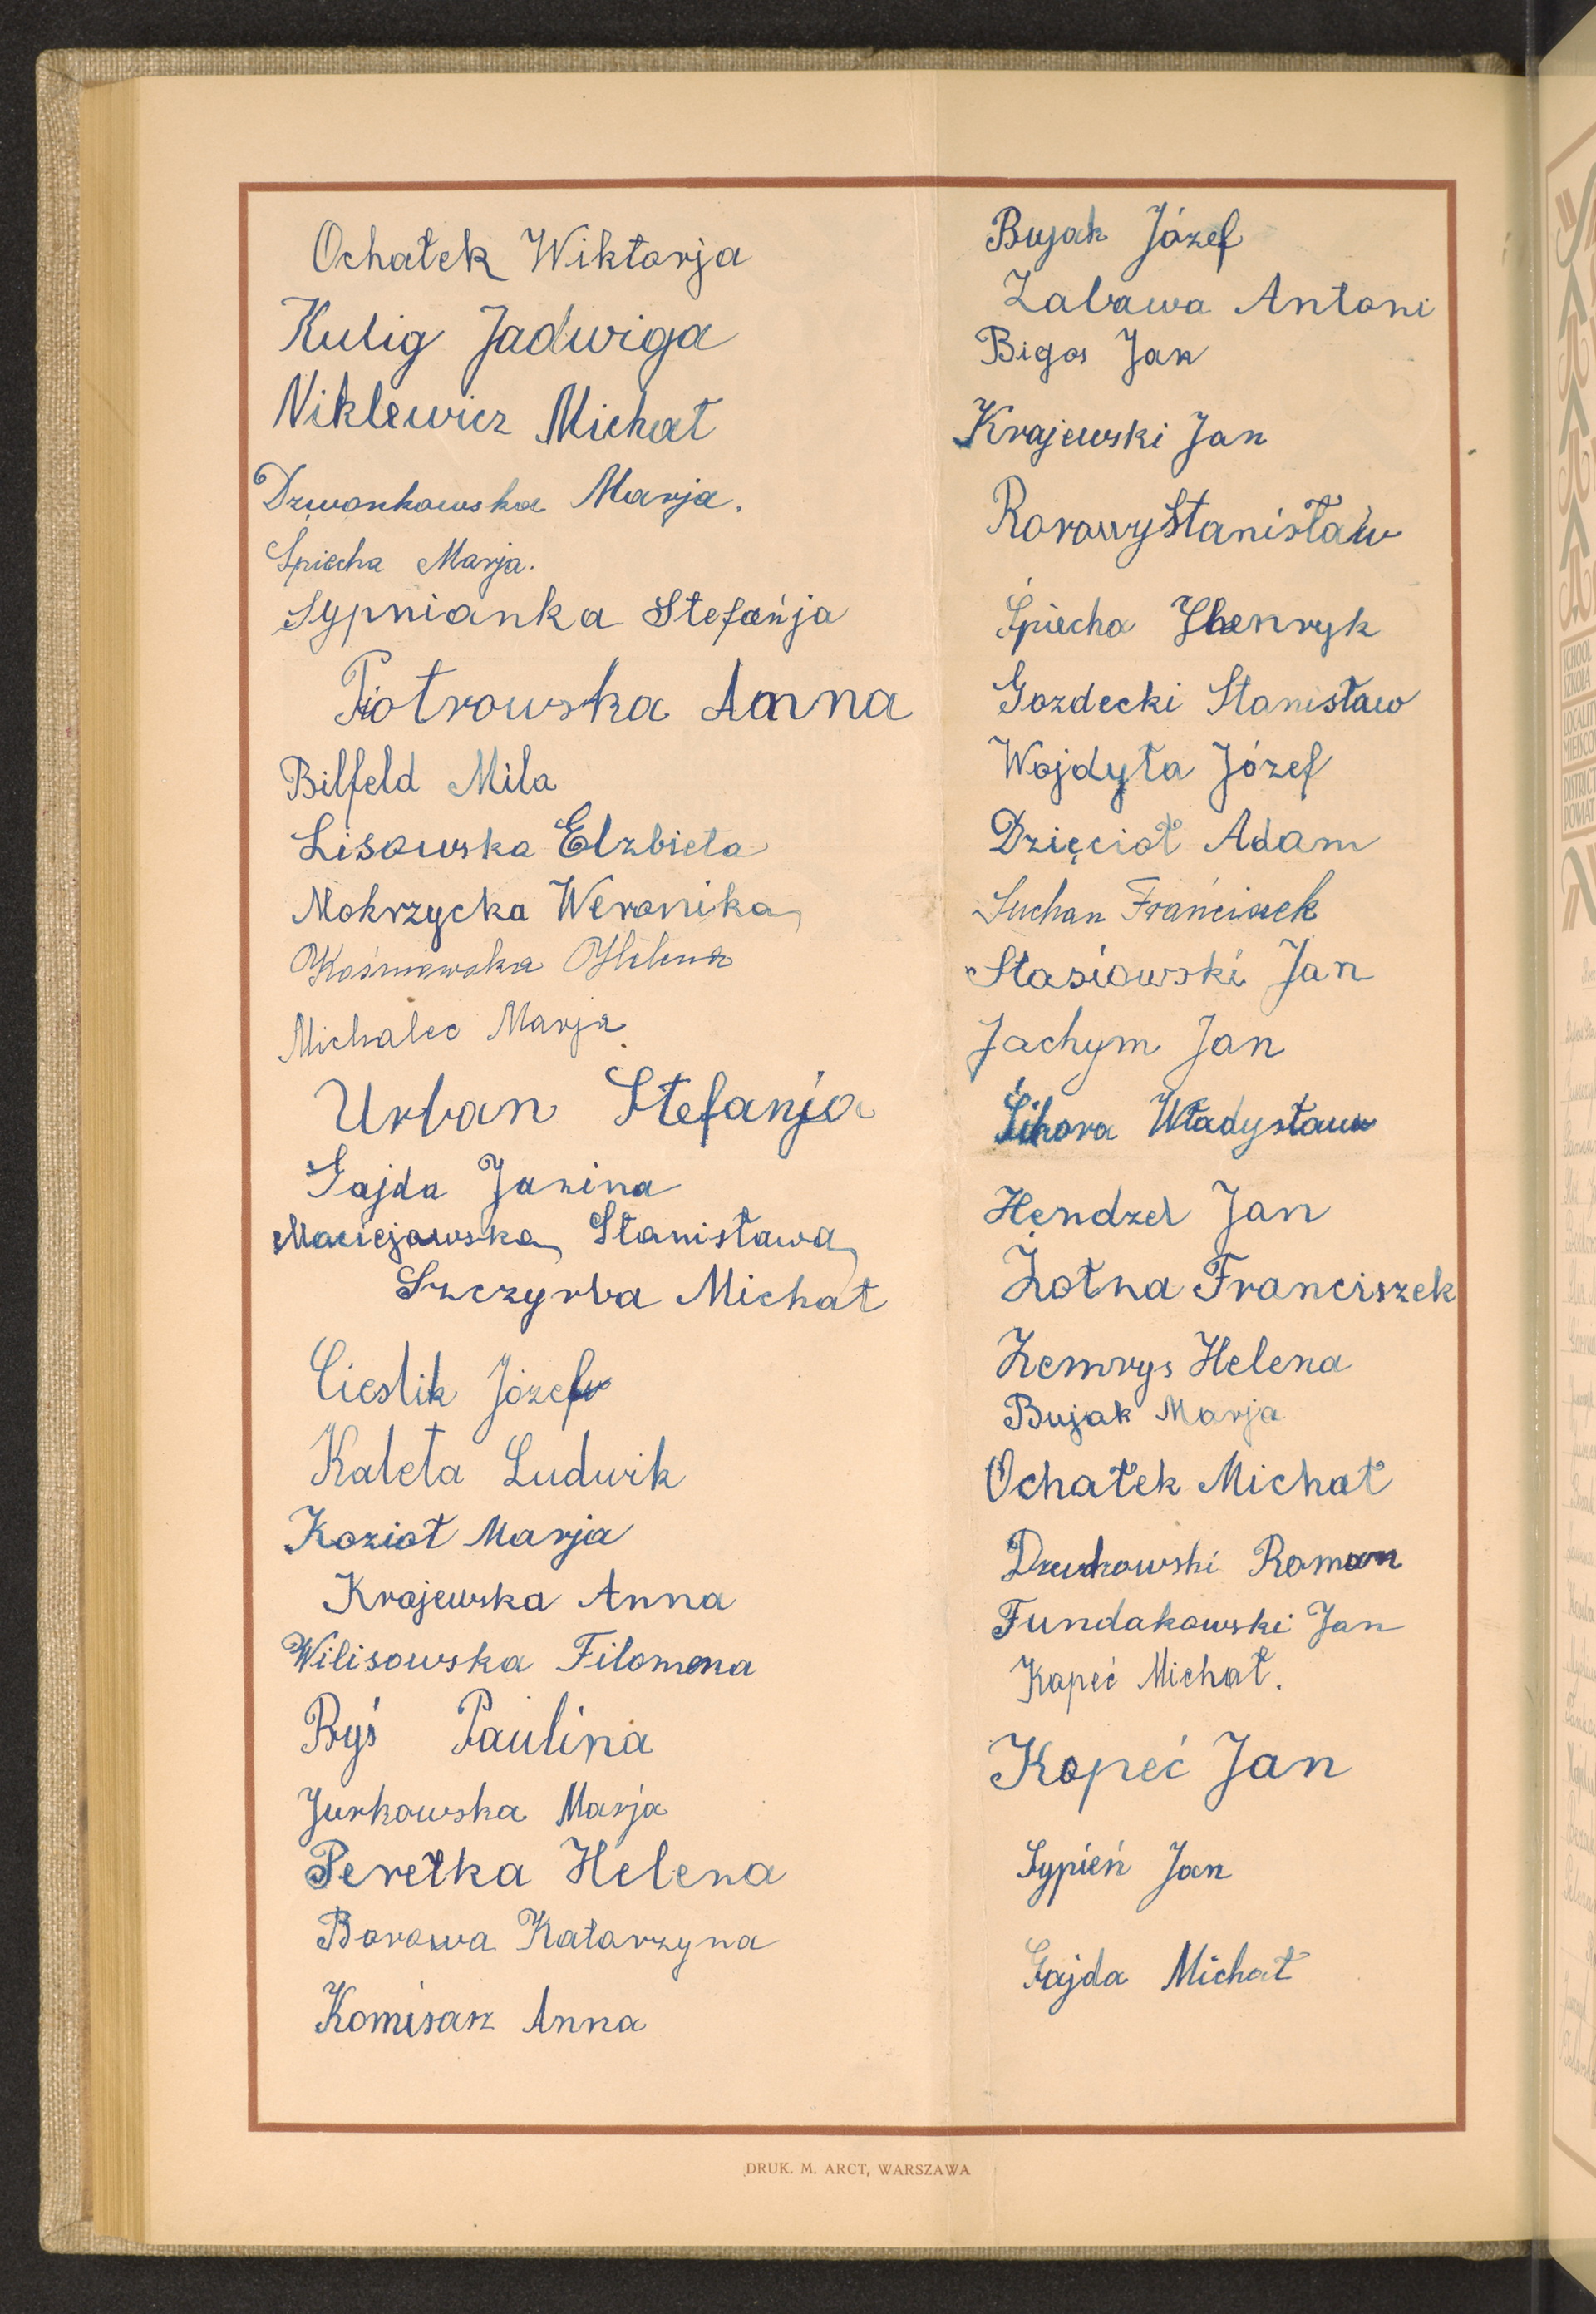 Ochałek Wiktorja
Kulig Jadwiga
Niklewicz Michał
Dzwonkowska Marja.
Śpiecha Marja.
Sypnianka Stefańja
Piotrowska Anna
Bilfeld Mila
Lisowska Elzbieta
Mokrzycka Weronika
Kośmowska Helena
Michalec Marja
Urban Stefanja
Gajda Janina
Maciejowska Stanisława
Szczyrba Michał
Cieslik Józef
Kaleta Ludwik
Kozioł Marja
Krajewska Anna
Wilisowska Filomena
Ryś Paulina
Jurkowska Marja
Perełka Helena
Borowa Katarzyna
Komisarz Anna
Bujak Józef
Zabawa Antoni
Bigos Jan
Krajewski Jan
Borowy Stanisław
Śpiecha Henryk
Gozdecki Stanisław
Wojdyła Józef
Dzięcioł Adam
Suchan
Stasiowski Jan
Jachym Jan
Sikora Władysław
Hendzel Jan
Żołna Franciszek
Zemrys Helena
Bujak Marja
Ochałek Michał
Roman
Fundakowski Jan
Kopeć Michał.
Kopeć Jan
Sypień Jan
Gajda Michał
DRUK. M. ARCT, WARSZAWA
SCHOOL
SZKOŁA